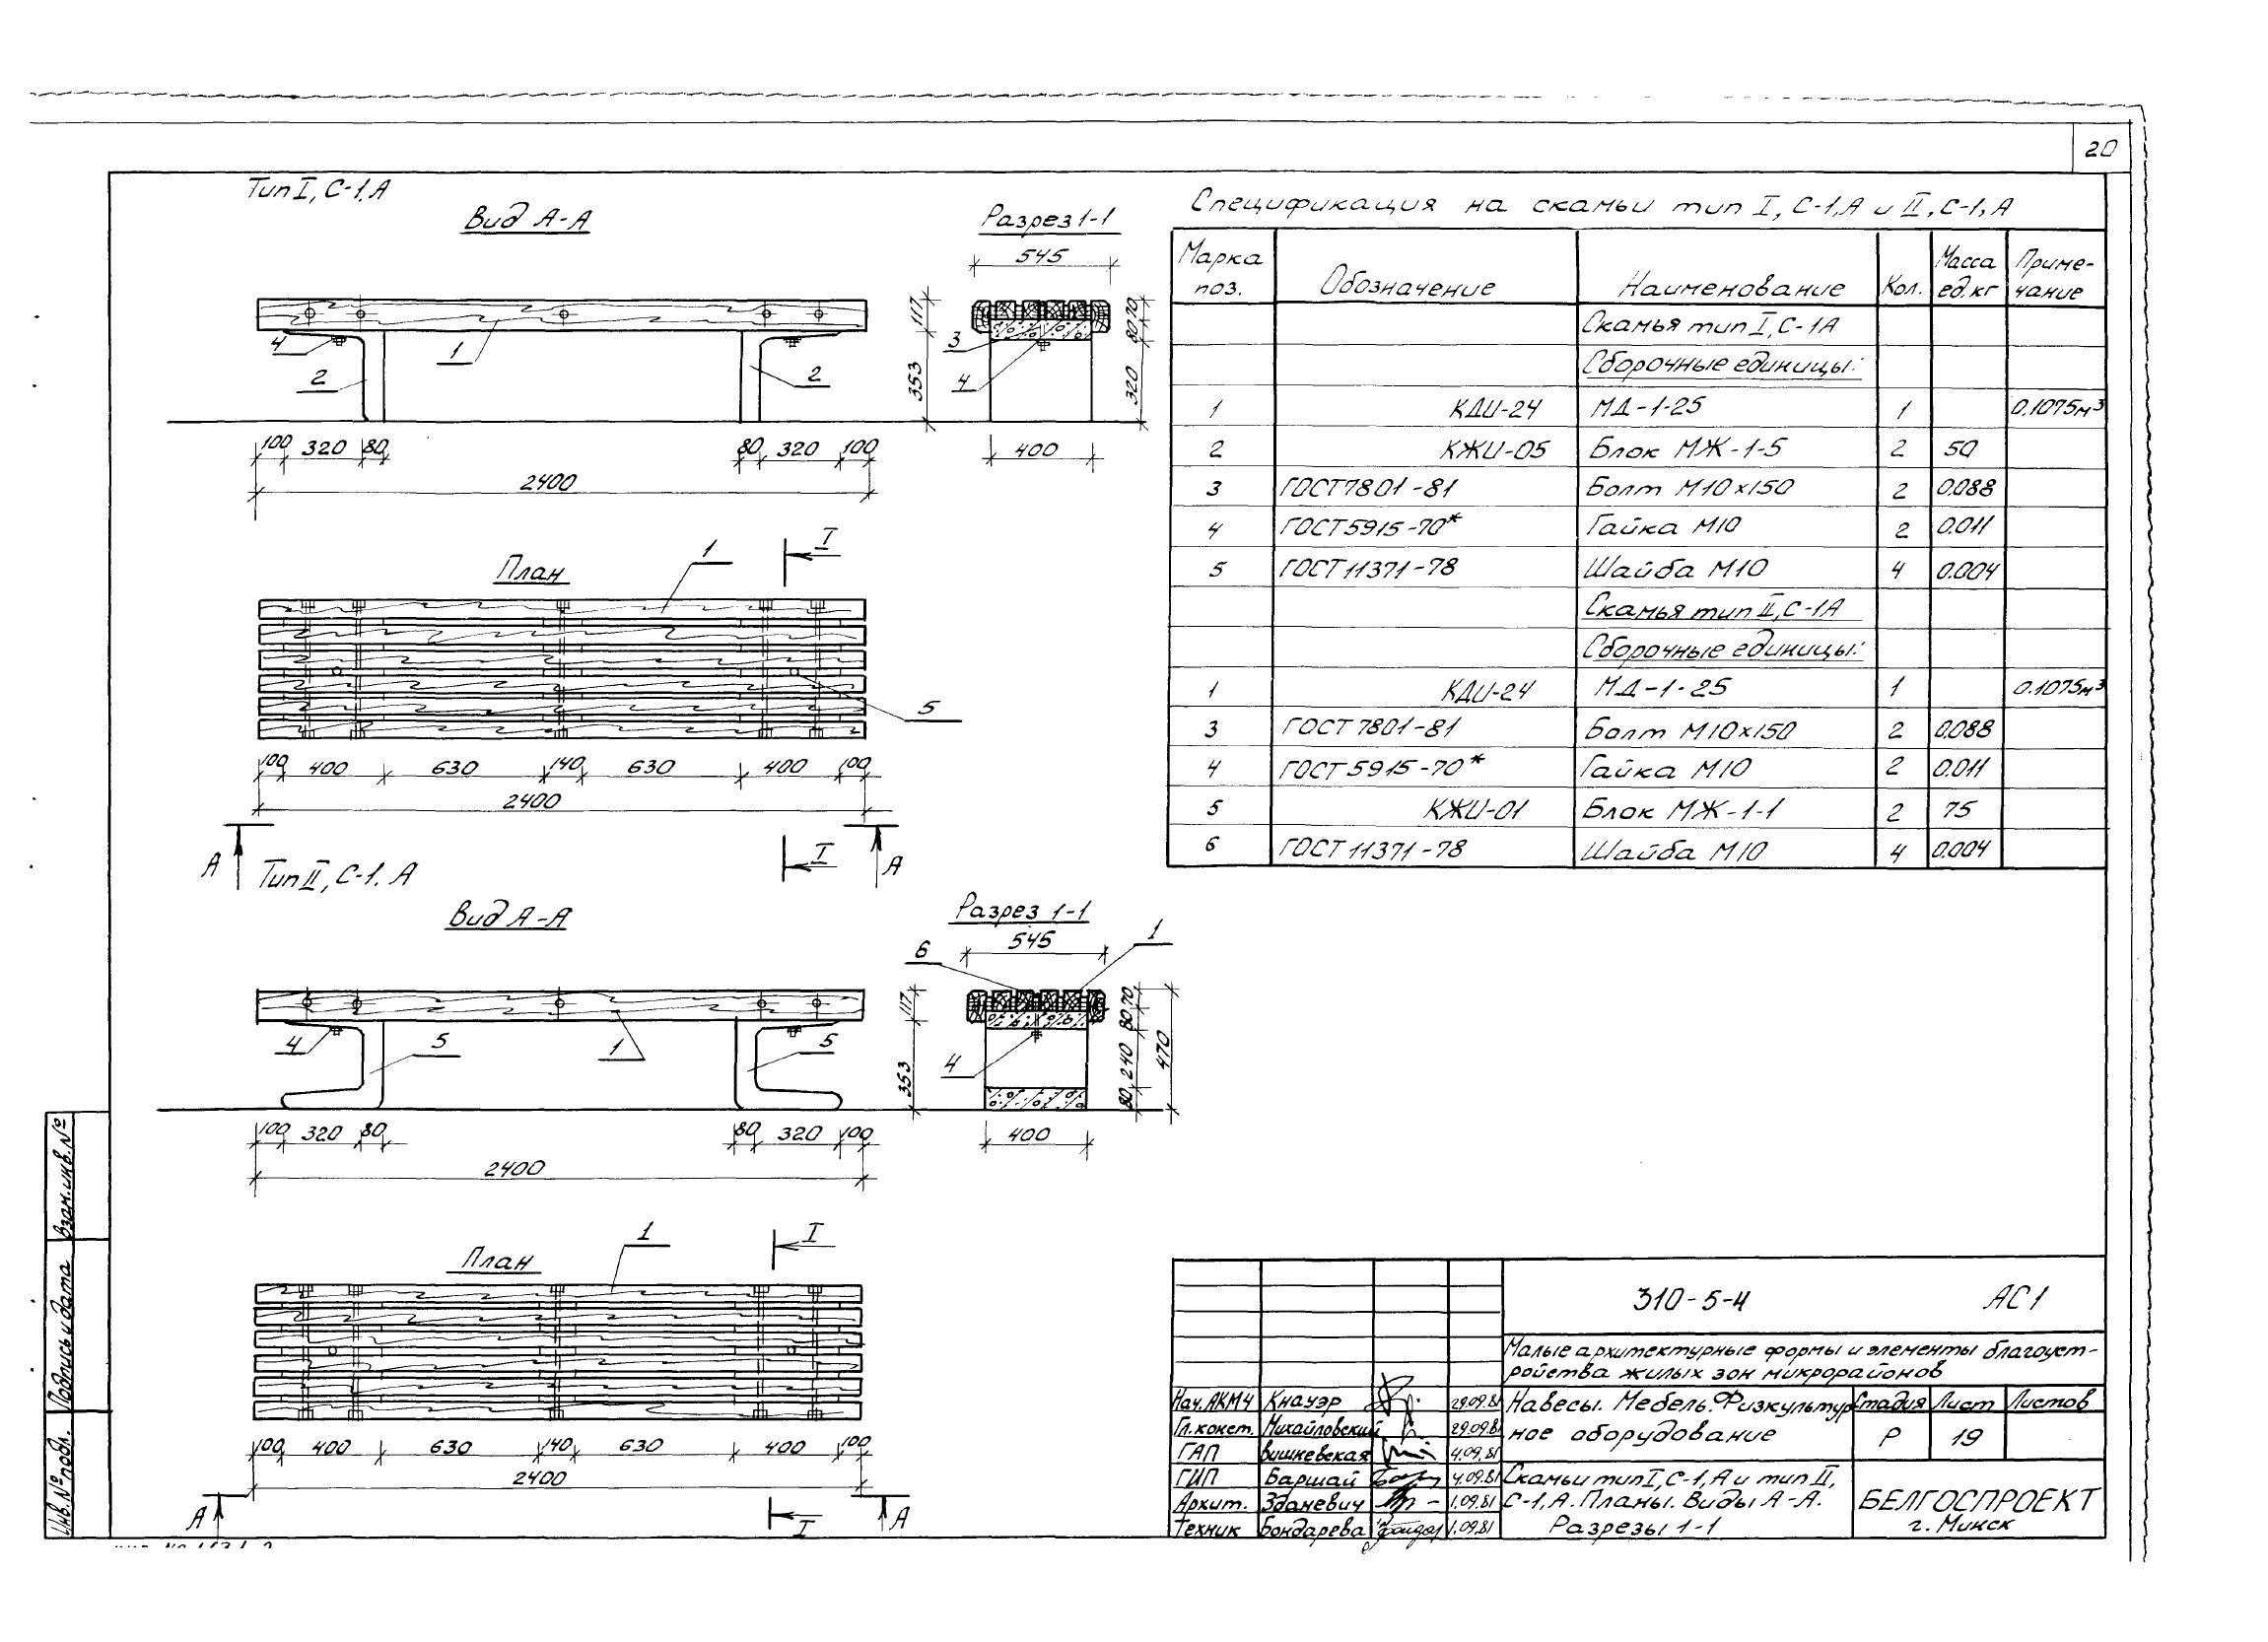 20
Тип I, С-1.А
Вид А-А
Разрез 1-1
545
117
353
70
80
320
3
4
4
1
2
2
100 320 80 80 320 100
400
2400
План
1
I
5
100 400 630 140 630 400 100
2400
А
I
А
Тип II, С-1. А
Вид А-А
Разрез 1-1
545
6
1
117
353
70
80
240
80
470
4
5
1
5
4
100 320 80 80 320 100
400
2400
План
1
I
100 400 630 140 630 400 100
2400
А
I
А
Спецификация на скамьи тип I, С-1,А и II, С-1,А
Марка поз. Обозначение Наименование Кол. Масса ед.кг Приме-чание
Скамья тип I, С-1А
Сборочные единицы:
1 КДИ-24 МД-1-25 1 0.1075м³
2 КЖИ-05 Блок МЖ-1-5 2 50
3 ГОСТ 7801-81 Болт М10х150 2 0.088
4 ГОСТ 5915-70* Гайка М10 2 0.011
5 ГОСТ 11371-78 Шайба М10 4 0.004
Скамья тип II, С-1А
Сборочные единицы:
1 КДИ-24 МД-1-25 1 0.1075м³
3 ГОСТ 7801-81 Болт М10х150 2 0.088
4 ГОСТ 5915-70* Гайка М10 2 0.011
5 КЖИ-01 Блок МЖ-1-1 2 75
6 ГОСТ 11371-78 Шайба М10 4 0.004
310-5-4 АС1
Малые архитектурные формы и элементы благоуст-
ройства жилых зон микрорайонов
Нач.АКМ4 Кнауэр 29.09.81
Гл.конст. Михайловский 29.09.81
ГАП Вишневская 4.09.81
ГИП Баршай 4.09.81
Архит. Зданевич 1.09.81
Техник Бондарева 1.09.81
Навесы. Мебель. Физкультур
ное оборудование
Стадия Лист Листов
Р 19
Скамьи тип I, С-1,А и тип II,
С-1,А. Планы. Виды А-А.
Разрезы 1-1
БЕЛГОСПРОЕКТ
г. Минск
Взам.инв.№
Подпись и дата
Инв.№ подл.